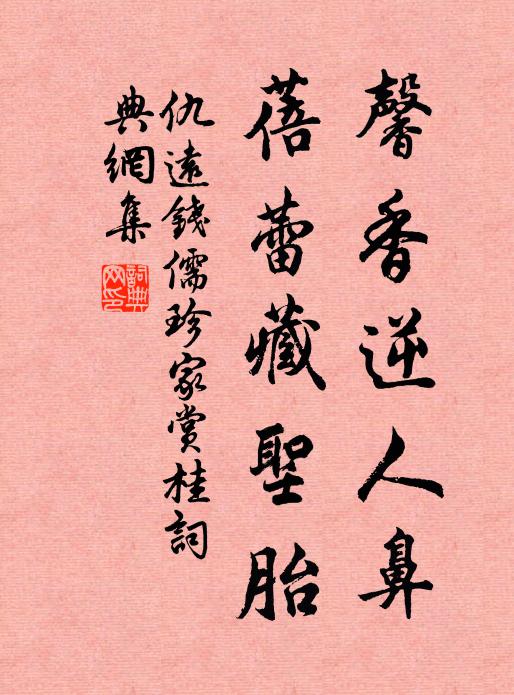 馨香逆人鼻
蓓蕾藏聖胎
仇遠錢儒珍家賞桂詞
典網集
詞典
网印